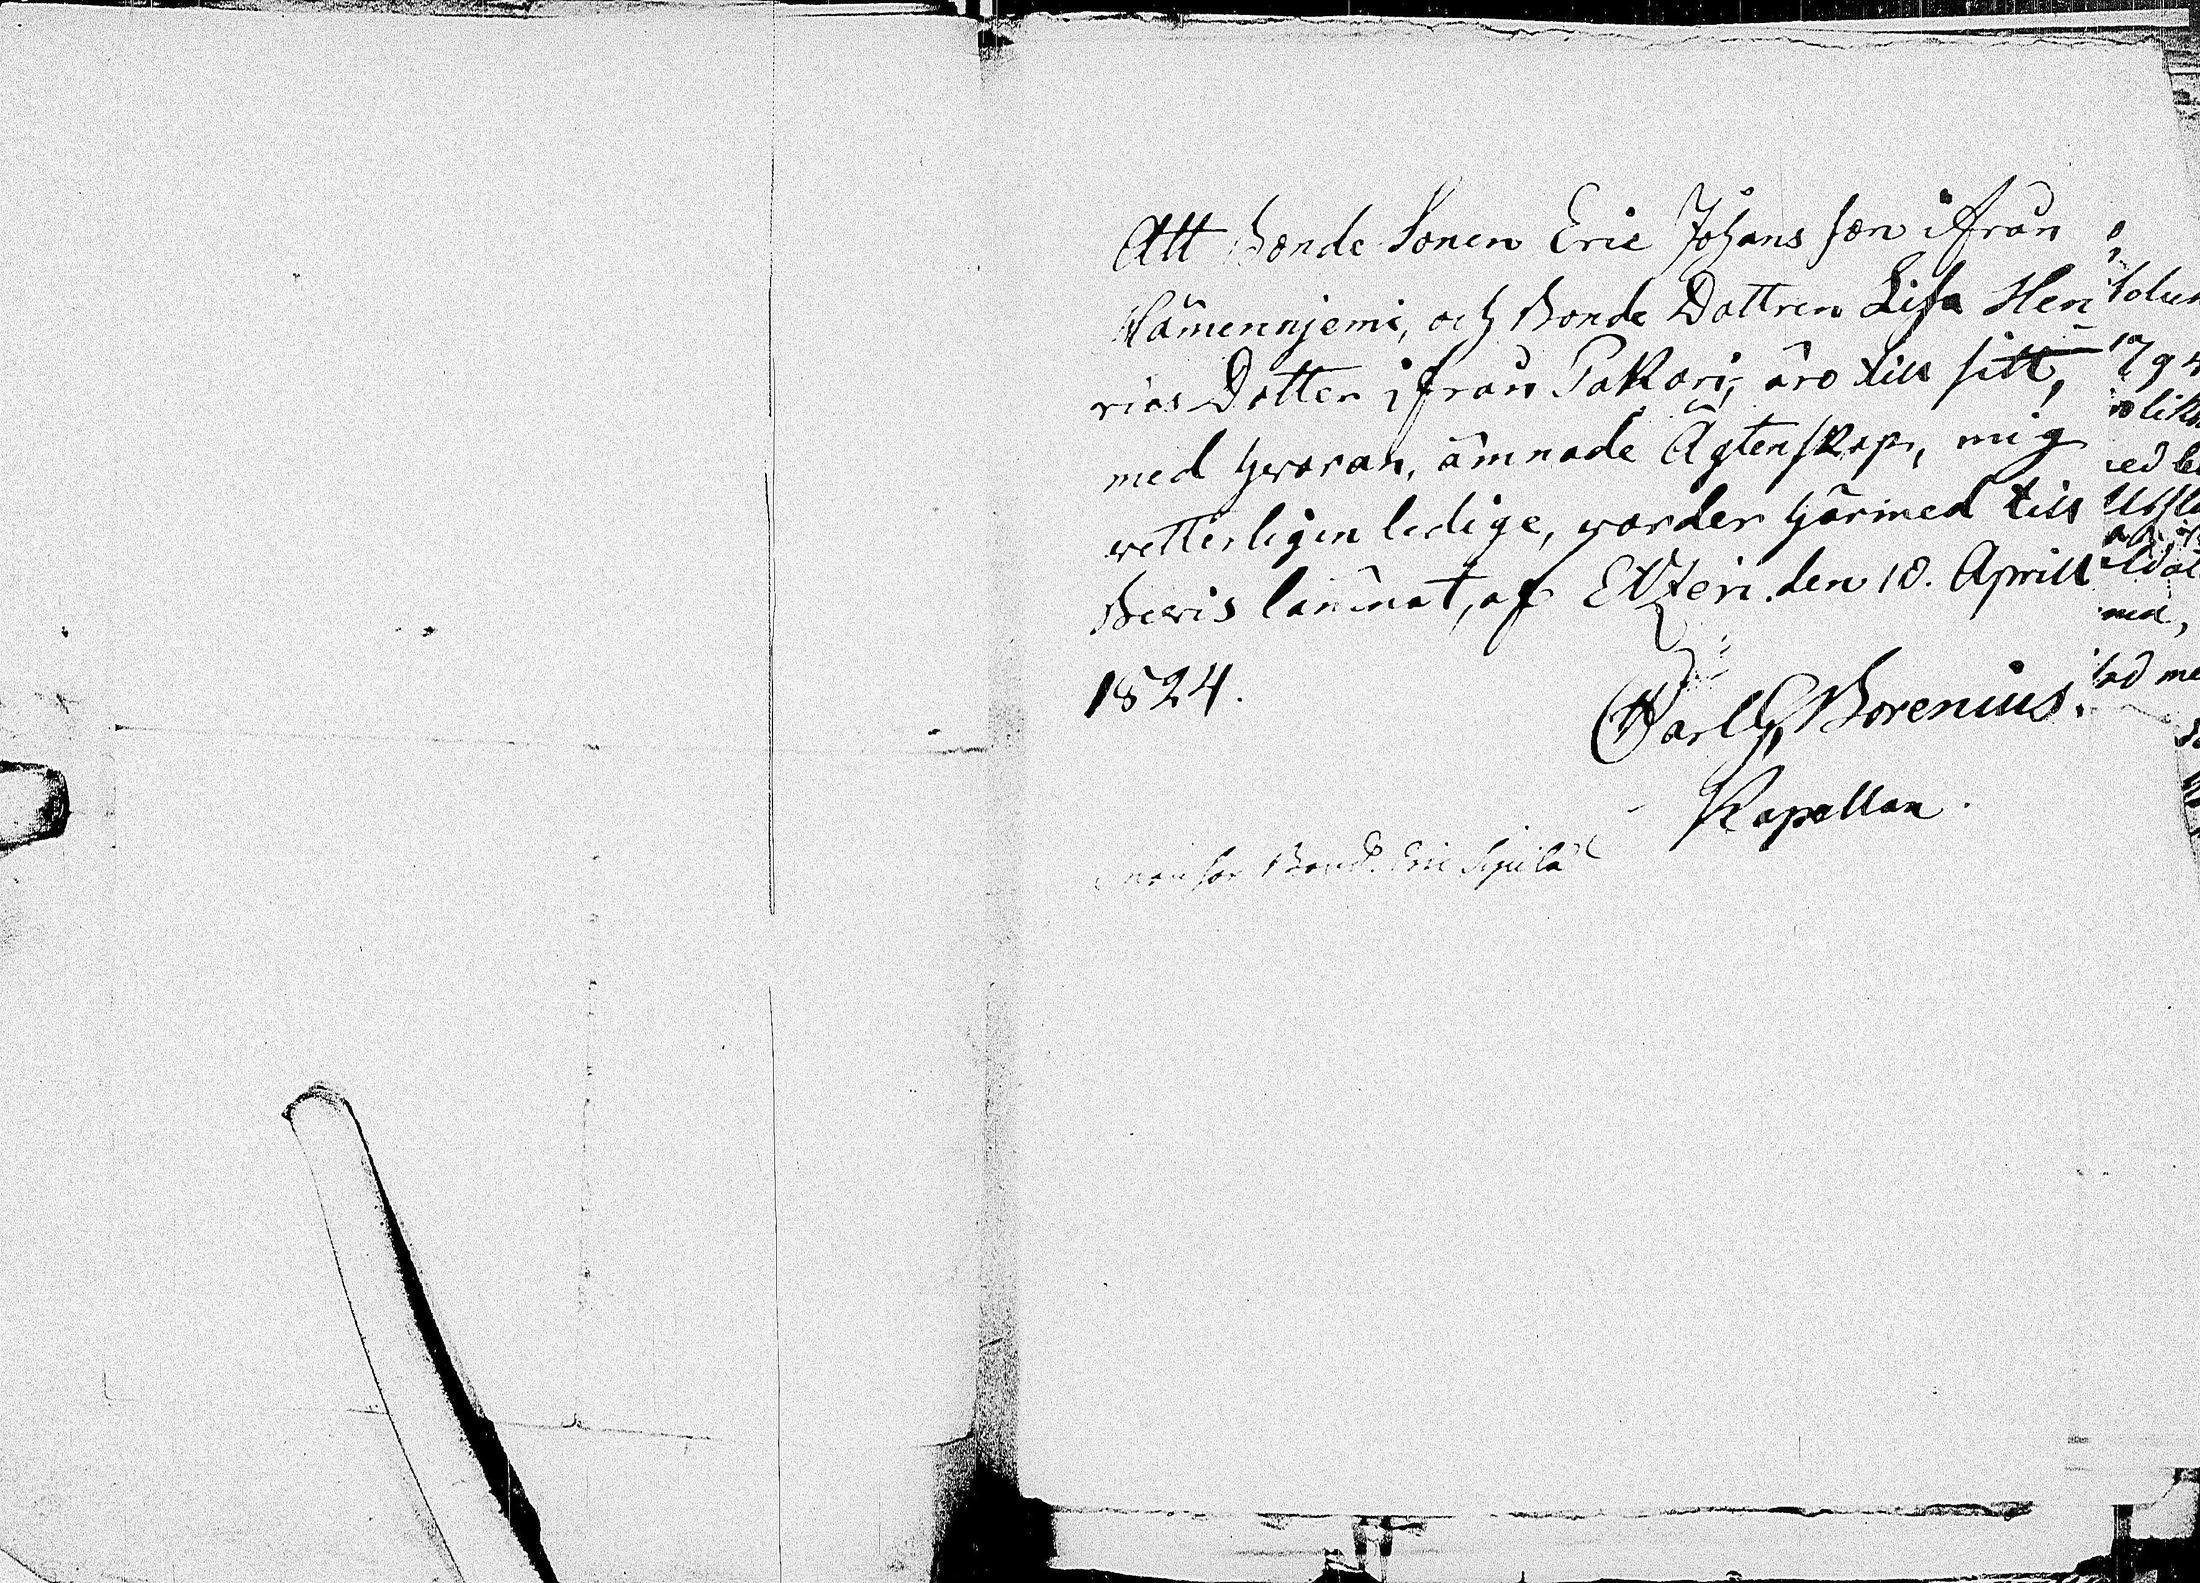 Att Bonde Sonen Eric Johans son ifrån
Hämennjemi, och Bonde Dottren Lisa Hen
rics Dotter ifrån Pakari, äro till sitt,
med hvaran, ämnade Ägtenskap, mig
vetterligen ledige, varder härmed till
Bevis lämnat, af Etzeri den 18. Aprill
1824.
Carl G Borenius.
Kapellan.
Bond. Eric Sipilä